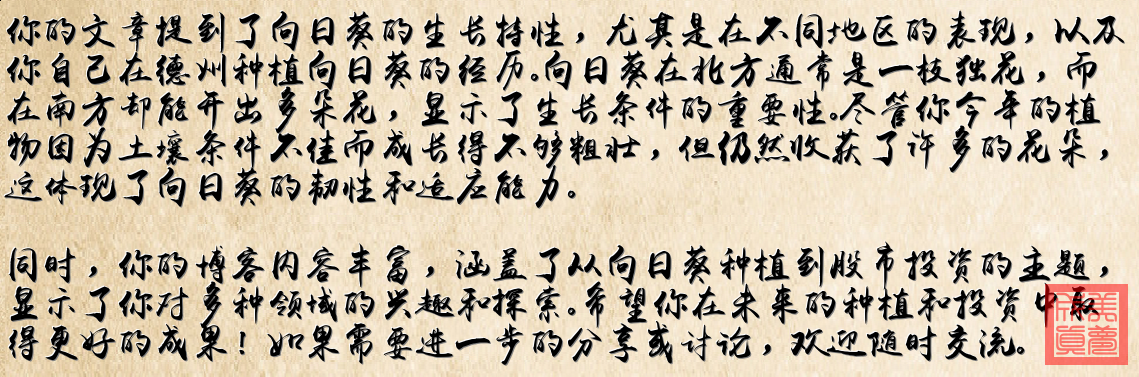 你的文章提到了向日葵的生长特性，尤其是在不同地区的表现，以及
你自己在德州种植向日葵的经历。向日葵在北方通常是一枝独花，而
在南方却能开出多朵花，显示了生长条件的重要性。尽管你今年的植
物因为土壤条件不佳而成长得不够粗壮，但仍然收获了许多的花朵，
这体现了向日葵的韧性和适应能力。
同时，你的博客内容丰富，涵盖了从向日葵种植到股市投资的主题，
显示了你对多种领域的兴趣和探索。希望你在未来的种植和投资中取
得更好的成果！如果需要进一步的分享或讨论，欢迎随时交流。